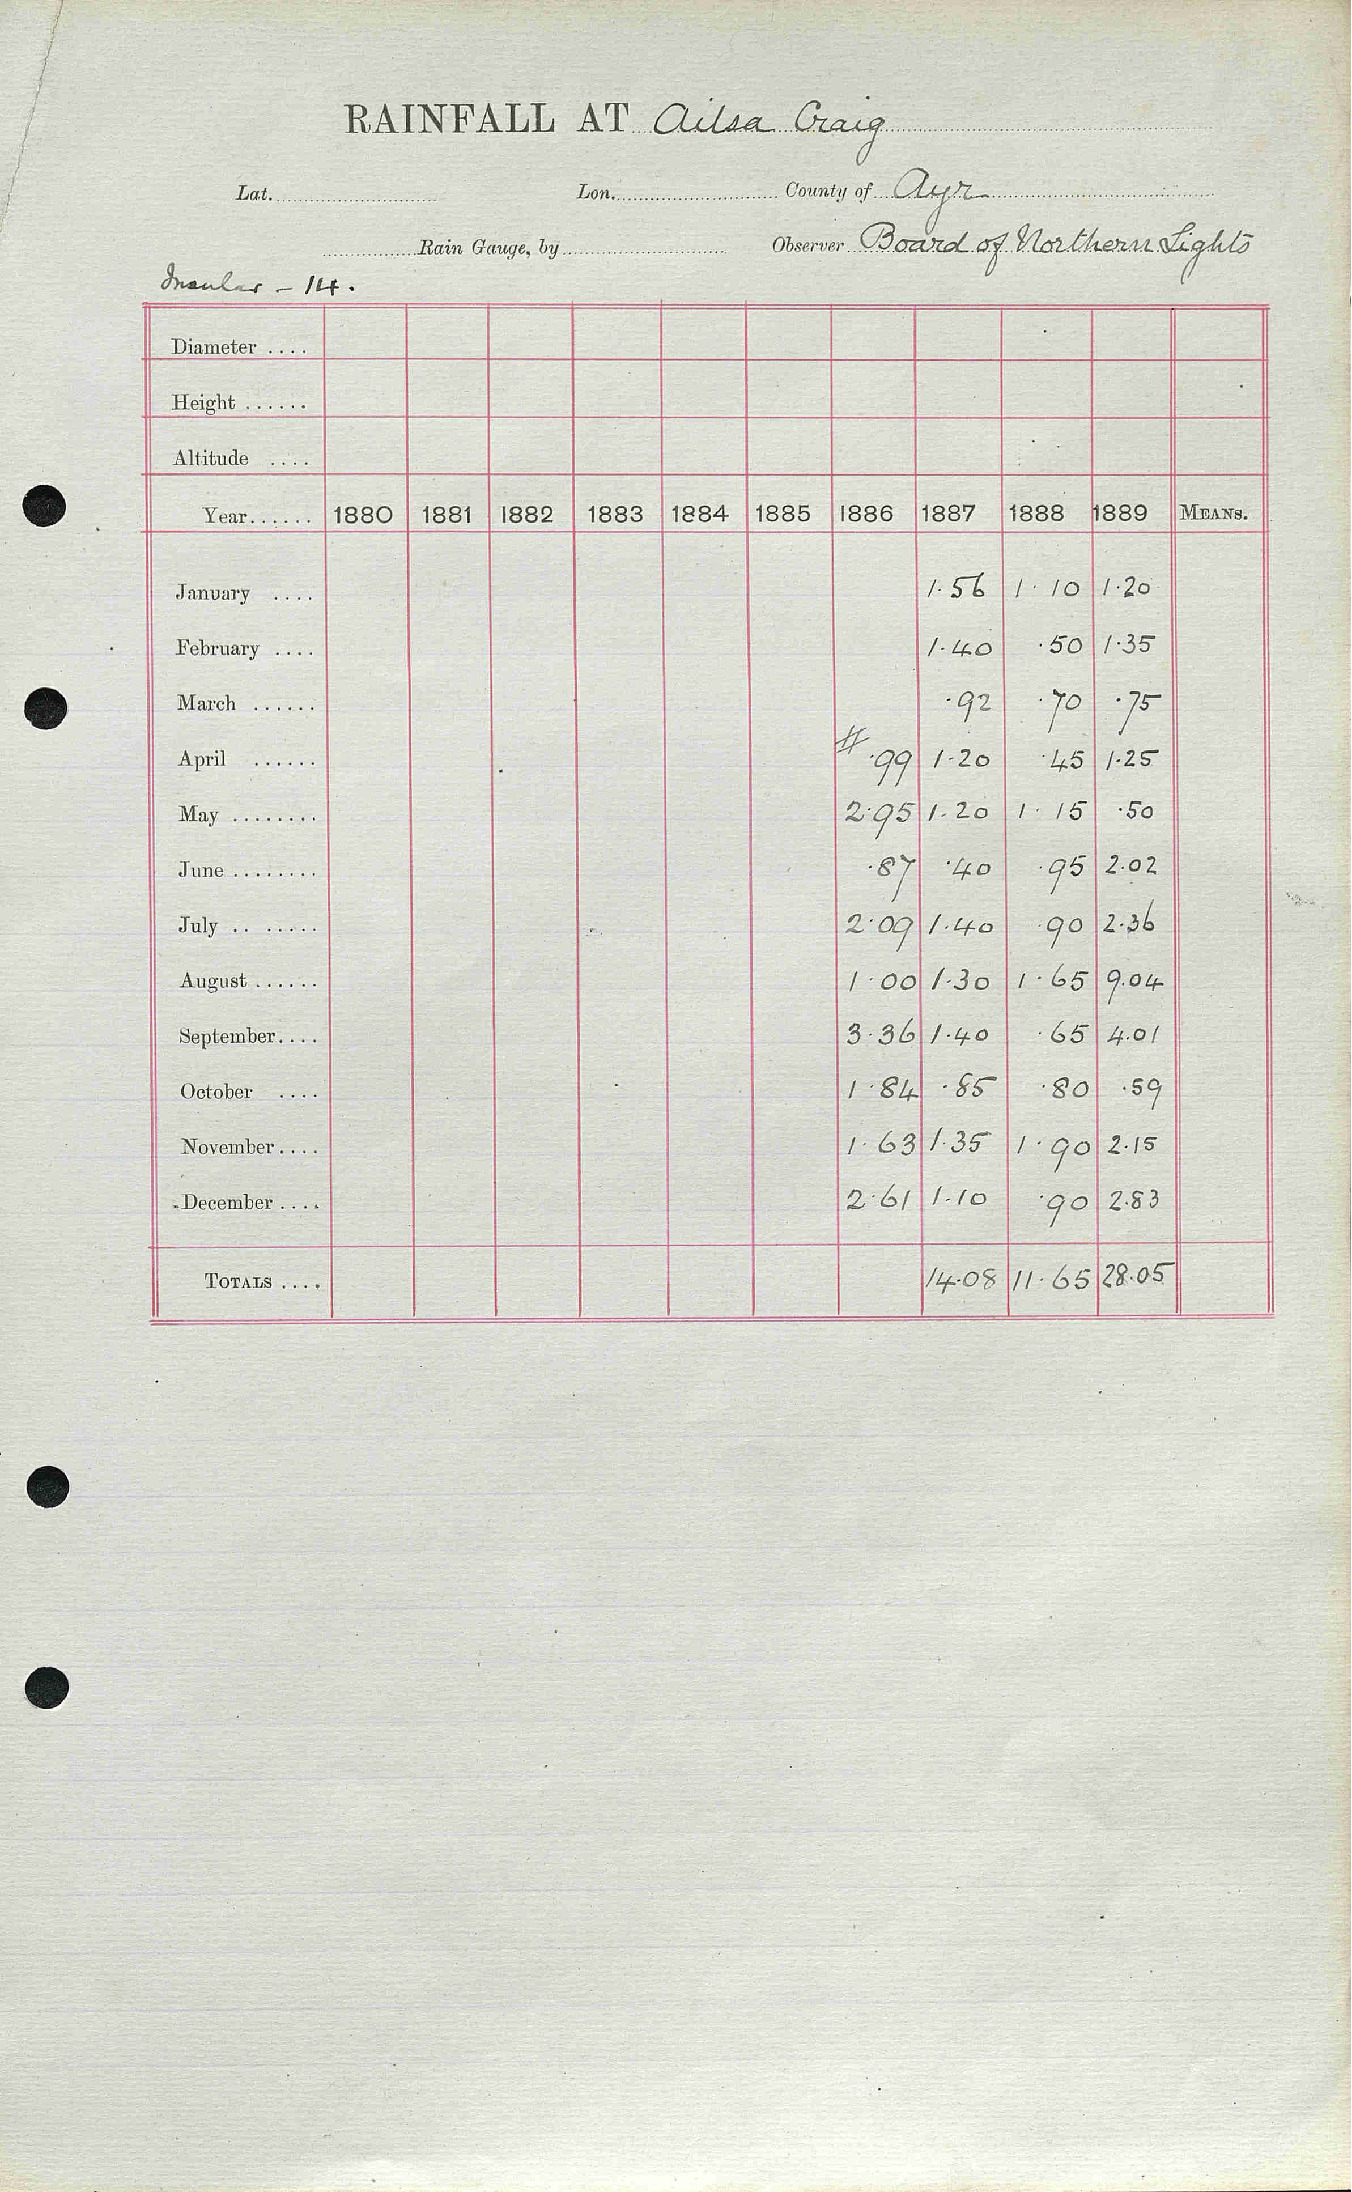 RAINFALL AT Ailsa Craig
Lat. Lon. County of Ayr
Rain Gauge, by Observer Board of Northern Lights
Insular - 14.
Diameter ....
Height ......
Altitude ....
Year...... 1880 1881 1882 1883 1884 1885 1886 1887 1888 1889 MEANS.
January .... 1.56 1.10 1.20
February .... 1.40 .50 1.35
March ...... .92 .70 .75
April ...... # .99 1.20 .45 1.25
May ........ 2.95 1.20 1.15 .50
June ........ .87 .40 .95 2.02
July .. ..... 2.09 1.40 .90 2.36
August ...... 1.00 1.30 1.65 9.04
September.... 3.36 1.40 .65 4.01
October .... 1.84 .85 .80 .59
November.... 1.63 1.35 1.90 2.15
December .... 2.61 1.10 .90 2.83
TOTALS .... 14.08 11.65 28.05